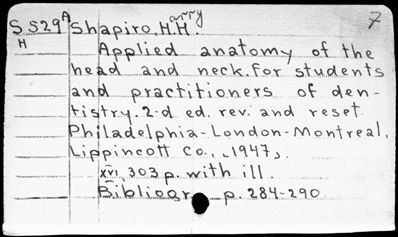 7
S S29 A Shapiro, H.H. arry
H Applied anatomy of the
head and neck. For students
and practitioners of den-
tistry. 2-d ed. rev. and reset.
Philadelphia-London-Montreal,
Lippincott Co., [1947].
xvi, 303 p. with ill.
Bibliogr p. 284-290.